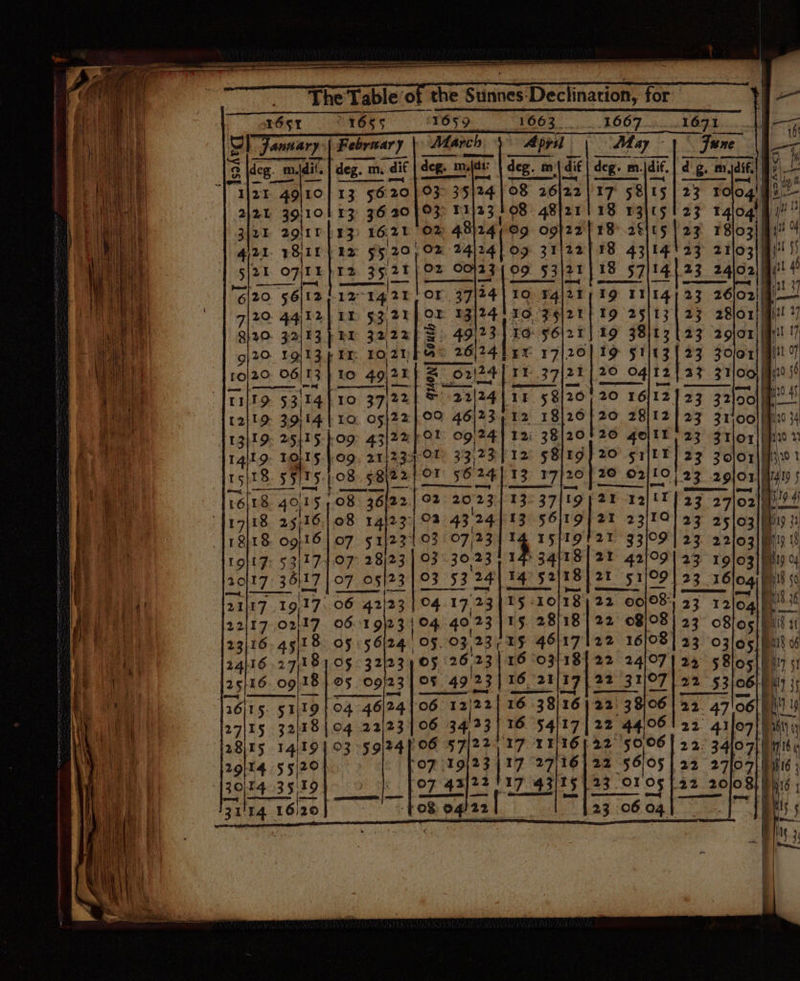 The Table of the Sunnes Declination, for
1651 1655 1659 1663 1667 1671
Dayes January February March April May June
deg. m. dif. deg. m. dif deg. m. dif deg. m dif deg. m. dif. d g. m. dif.
1 21 49 10 13 56 20 03 35 24 08 26 22 17 58 15 23 10 04
2 21 39 10 13 36 20 03 11 23 08 48 21 18 13 15 23 14 04
3 21 29 11 13 16 21 02 48 24 09 09 22 18 28 15 23 18 03
4 21 18 11 12 55 20 02 24 24 09 31 22 18 43 14 23 21 03
5 21 07 11 12 35 21 02 00 23 09 53 21 18 57 14 23 24 02
6 20 56 12 12 14 21 01 37 24 10 14 21 19 11 14 23 26 02
7 20 44 12 11 53 21 01 13 24 10 35 21 19 25 13 23 28 01
8 20 32 13 11 32 22 South 49 23 10 56 21 19 38 13 23 29 01
9 20 19 13 11 10 21 26 24 11 17 20 19 51 13 23 30 01
10 20 06 13 10 49 21 North 02 24 11 37 21 20 04 12 23 31 00
11 19 53 14 10 37 22 22 24 11 58 20 20 16 12 23 32 00
12 19 39 14 10 05 22 00 46 23 12 18 20 20 28 12 23 31 00
13 19 25 15 09 43 22 01 09 24 12 38 20 20 40 11 23 31 01
14 19 10 15 09 21 23 01 33 23 12 58 19 20 51 11 23 30 01
15 18 55 15 08 58 22 01 56 24 13 17 20 20 02 10 23 29 01
16 18 40 15 08 36 22 02 20 23 13 37 19 21 12 11 23 27 02
17 18 25 16 08 14 23 02 43 24 13 56 19 21 23 10 23 25 03
18 18 09 16 07 51 23 03 07 23 14 15 19 21 33 09 23 22 03
19 17 53 17 07 28 23 03 30 23 14 34 18 21 42 09 23 19 03
20 17 36 17 07 05 23 03 53 24 14 52 18 21 51 09 23 16 04
21 17 19 17 06 42 23 04 17 23 15 10 18 22 00 08 23 12 04
22 17 02 17 06 19 23 04 40 23 15 28 18 22 08 08 23 08 05
23 16 45 18 05 56 24 05 03 23 15 46 17 22 16 08 23 03 05
24 16 27 18 05 32 23 05 26 23 16 03 18 22 24 07 22 58 05
25 16 09 18 05 09 23 05 49 23 16 21 17 22 31 07 22 53 06
26 15 51 19 04 46 24 06 12 22 16 38 16 22 38 06 22 47 06
27 15 32 18 04 22 23 06 34 23 16 54 17 22 44 06 22 41 07
28 15 14 19 03 59 24 06 57 22 17 11 16 22 50 06 22 34 07
29 14 55 20 07 19 23 17 27 16 22 56 05 22 27 07
30 14 35 19 07 42 22 17 43 15 23 01 05 22 20 08
31 14 16 20 08 04 22 23 06 04